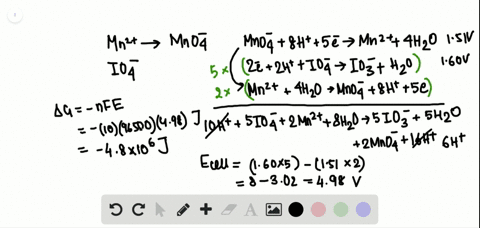 Mn²⁺ → MnO₄⁻
IO₄⁻
MnO₄⁻ + 8H⁺ + 5e⁻ → Mn²⁺ + 4H₂O 1.51V
5× (2e⁻ + 2H⁺ + IO₄⁻ → IO₃⁻ + H₂O) 1.60V
2× (Mn²⁺ + 4H₂O → MnO₄⁻ + 8H⁺ + 5e⁻)
10H⁺ + 5IO₄⁻ + 2Mn²⁺ + 8H₂O → 5IO₃⁻ + 5H₂O
+ 2MnO₄⁻ + 16H⁺ 6H⁺
ΔG = -nFE
= -(10)(96500)(4.98) J
= -4.8×10⁶ J
Ecell = (1.60×5) - (1.51×2)
= 8 - 3.02 = 4.98 V